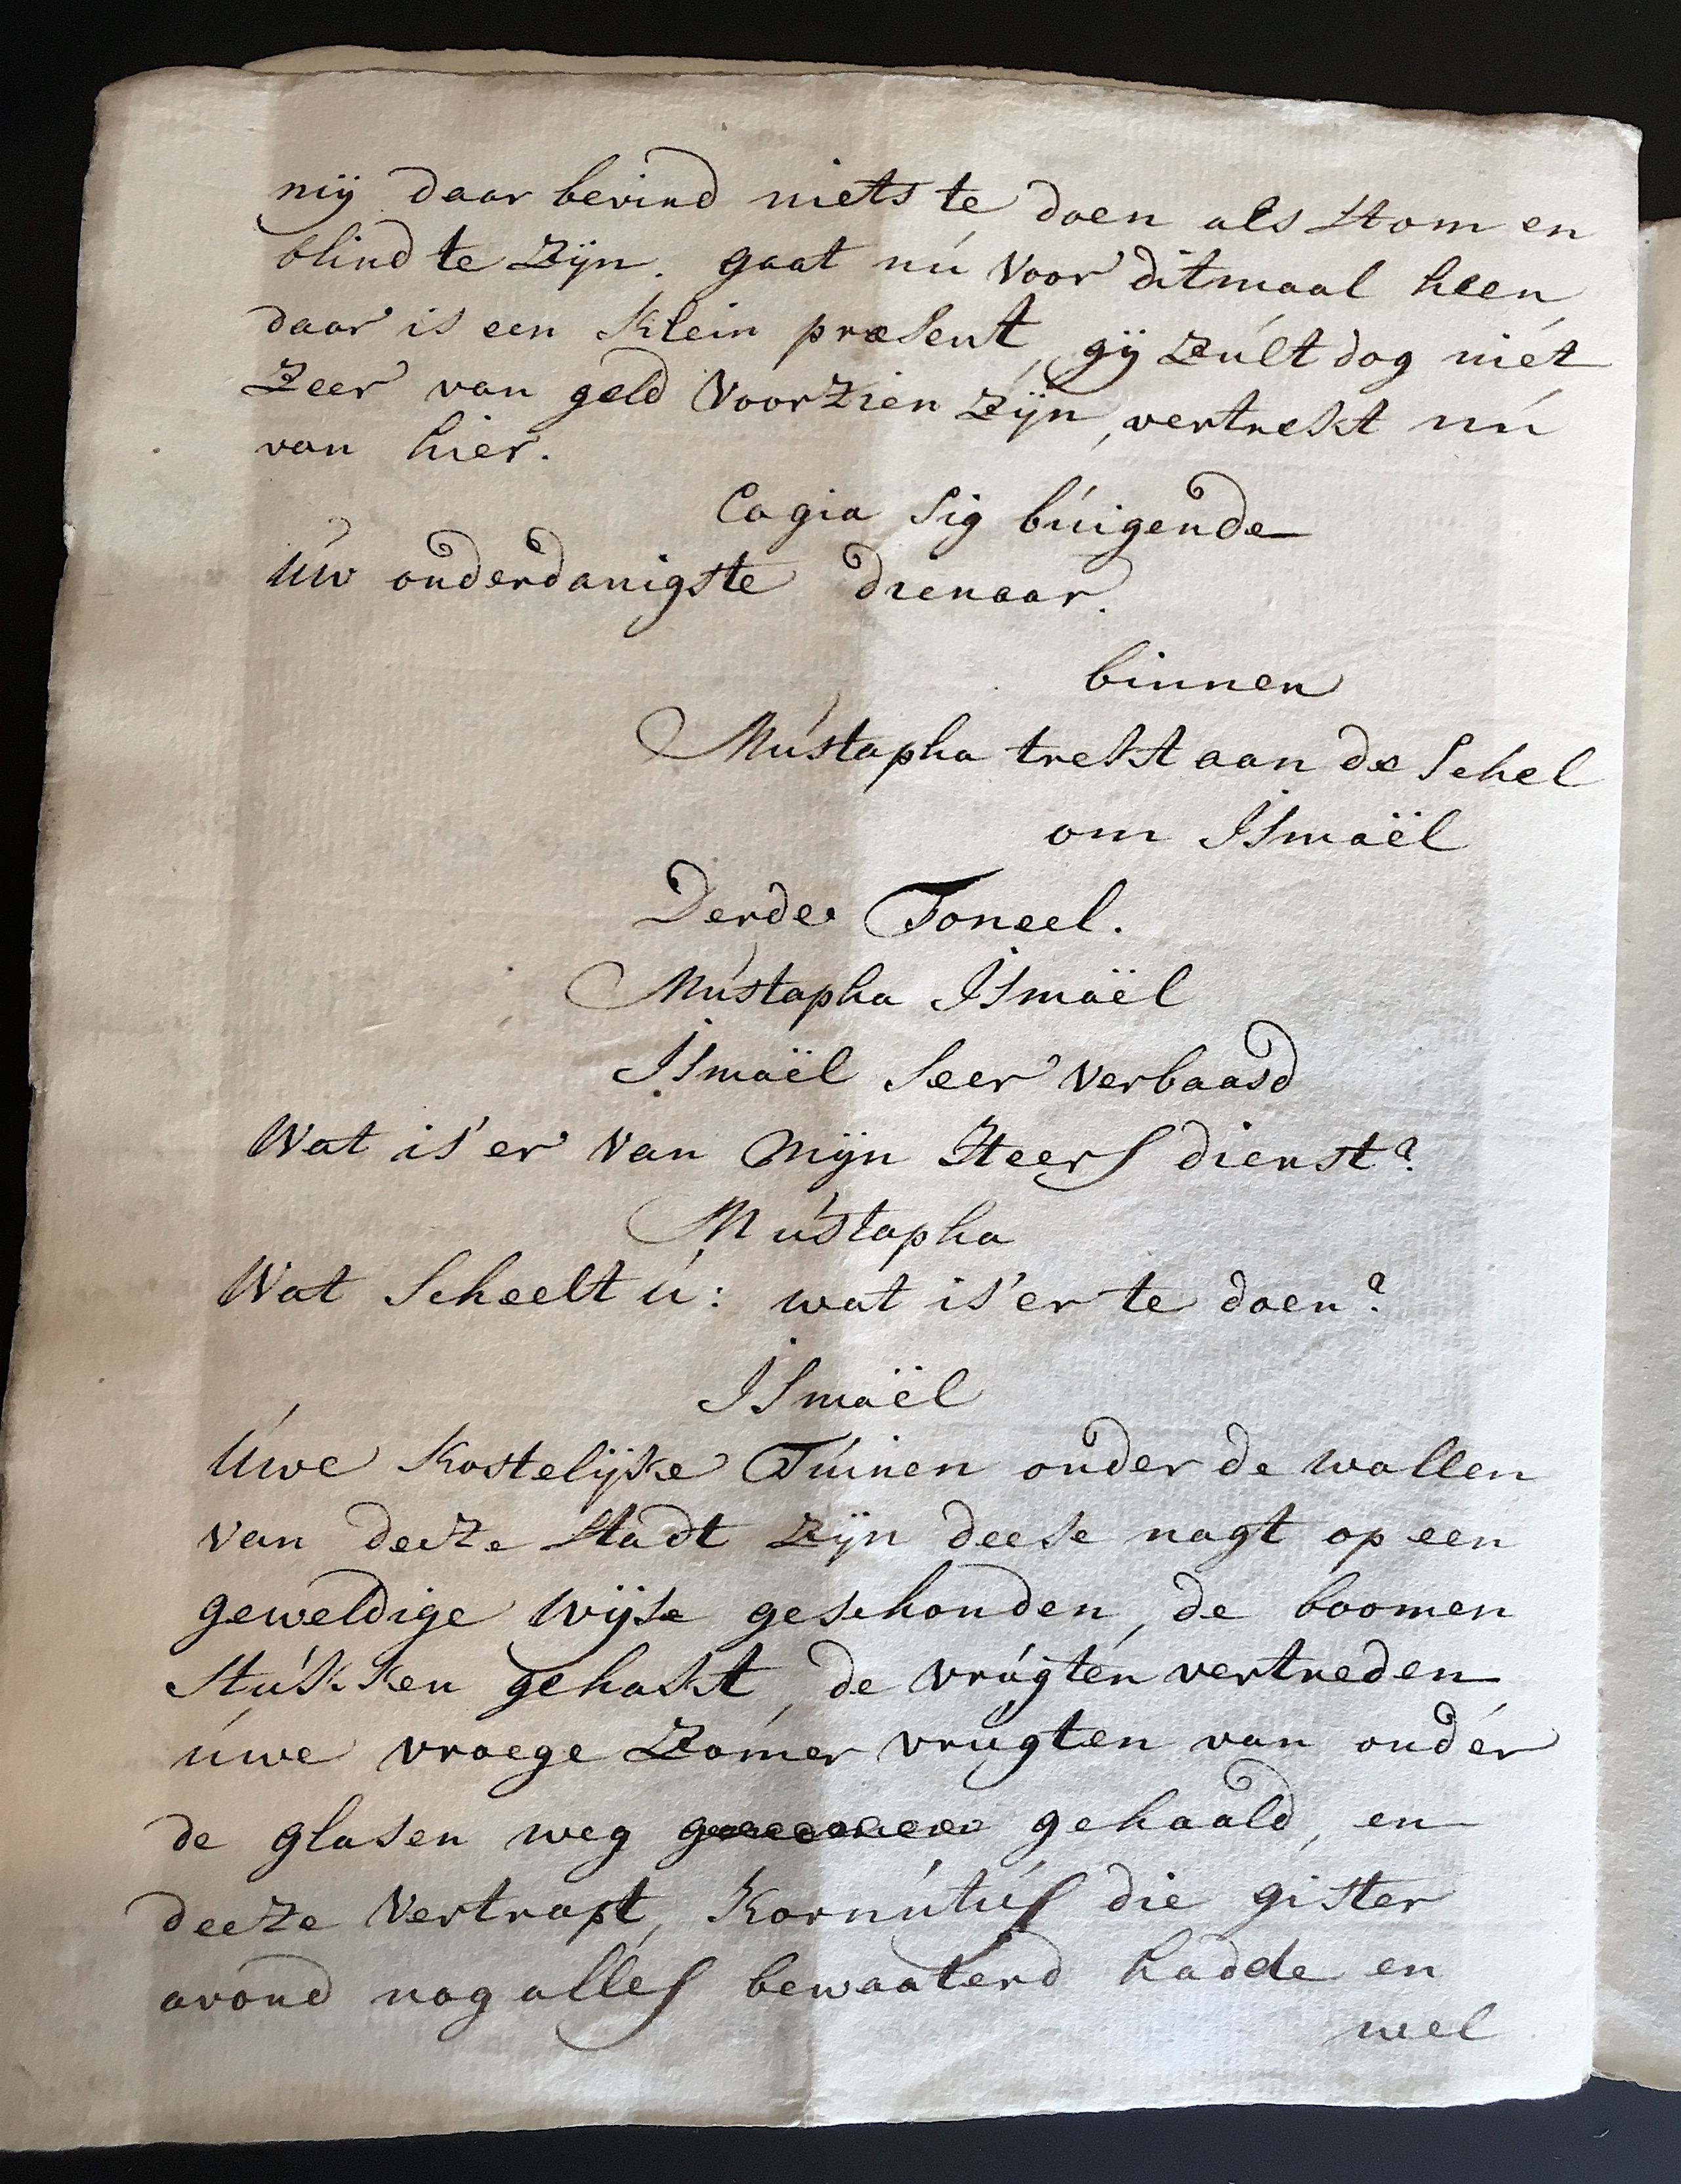 mij daar bevind niets te doen als stom en
blind te zijn. gaat nú voor ditmaal heen
daar is een klein præsent, gij zúlt dog niét
zeer van geld voorzien zijn, vertrekt nú
van hier.
Cagia sig búigende
Úw onderdanigste dienaar.
binnen
Mústapha trekt aan de schel
om Ismaël
Derde Toneel.
Mústapha Ismaël
Ismaël seer verbaasd
Wat is'er van Mijn Heers dienst?
Mústapha
Wat scheelt ú: wat is'er te doen?
Ismaël
Úwe kostelijke Túinen onder de wallen
van deeze stadt zijn deese nagt op een
geweldige wijse geschonden, de boomen
stúkken gehakt, de vrúgten vertreden
úwe vroege zomer vrúgten van onder
de glasen weg gehaald, en
deeze vertrapt, Kornútús die gister
avond nog alles bewaaterd hadde en
wel